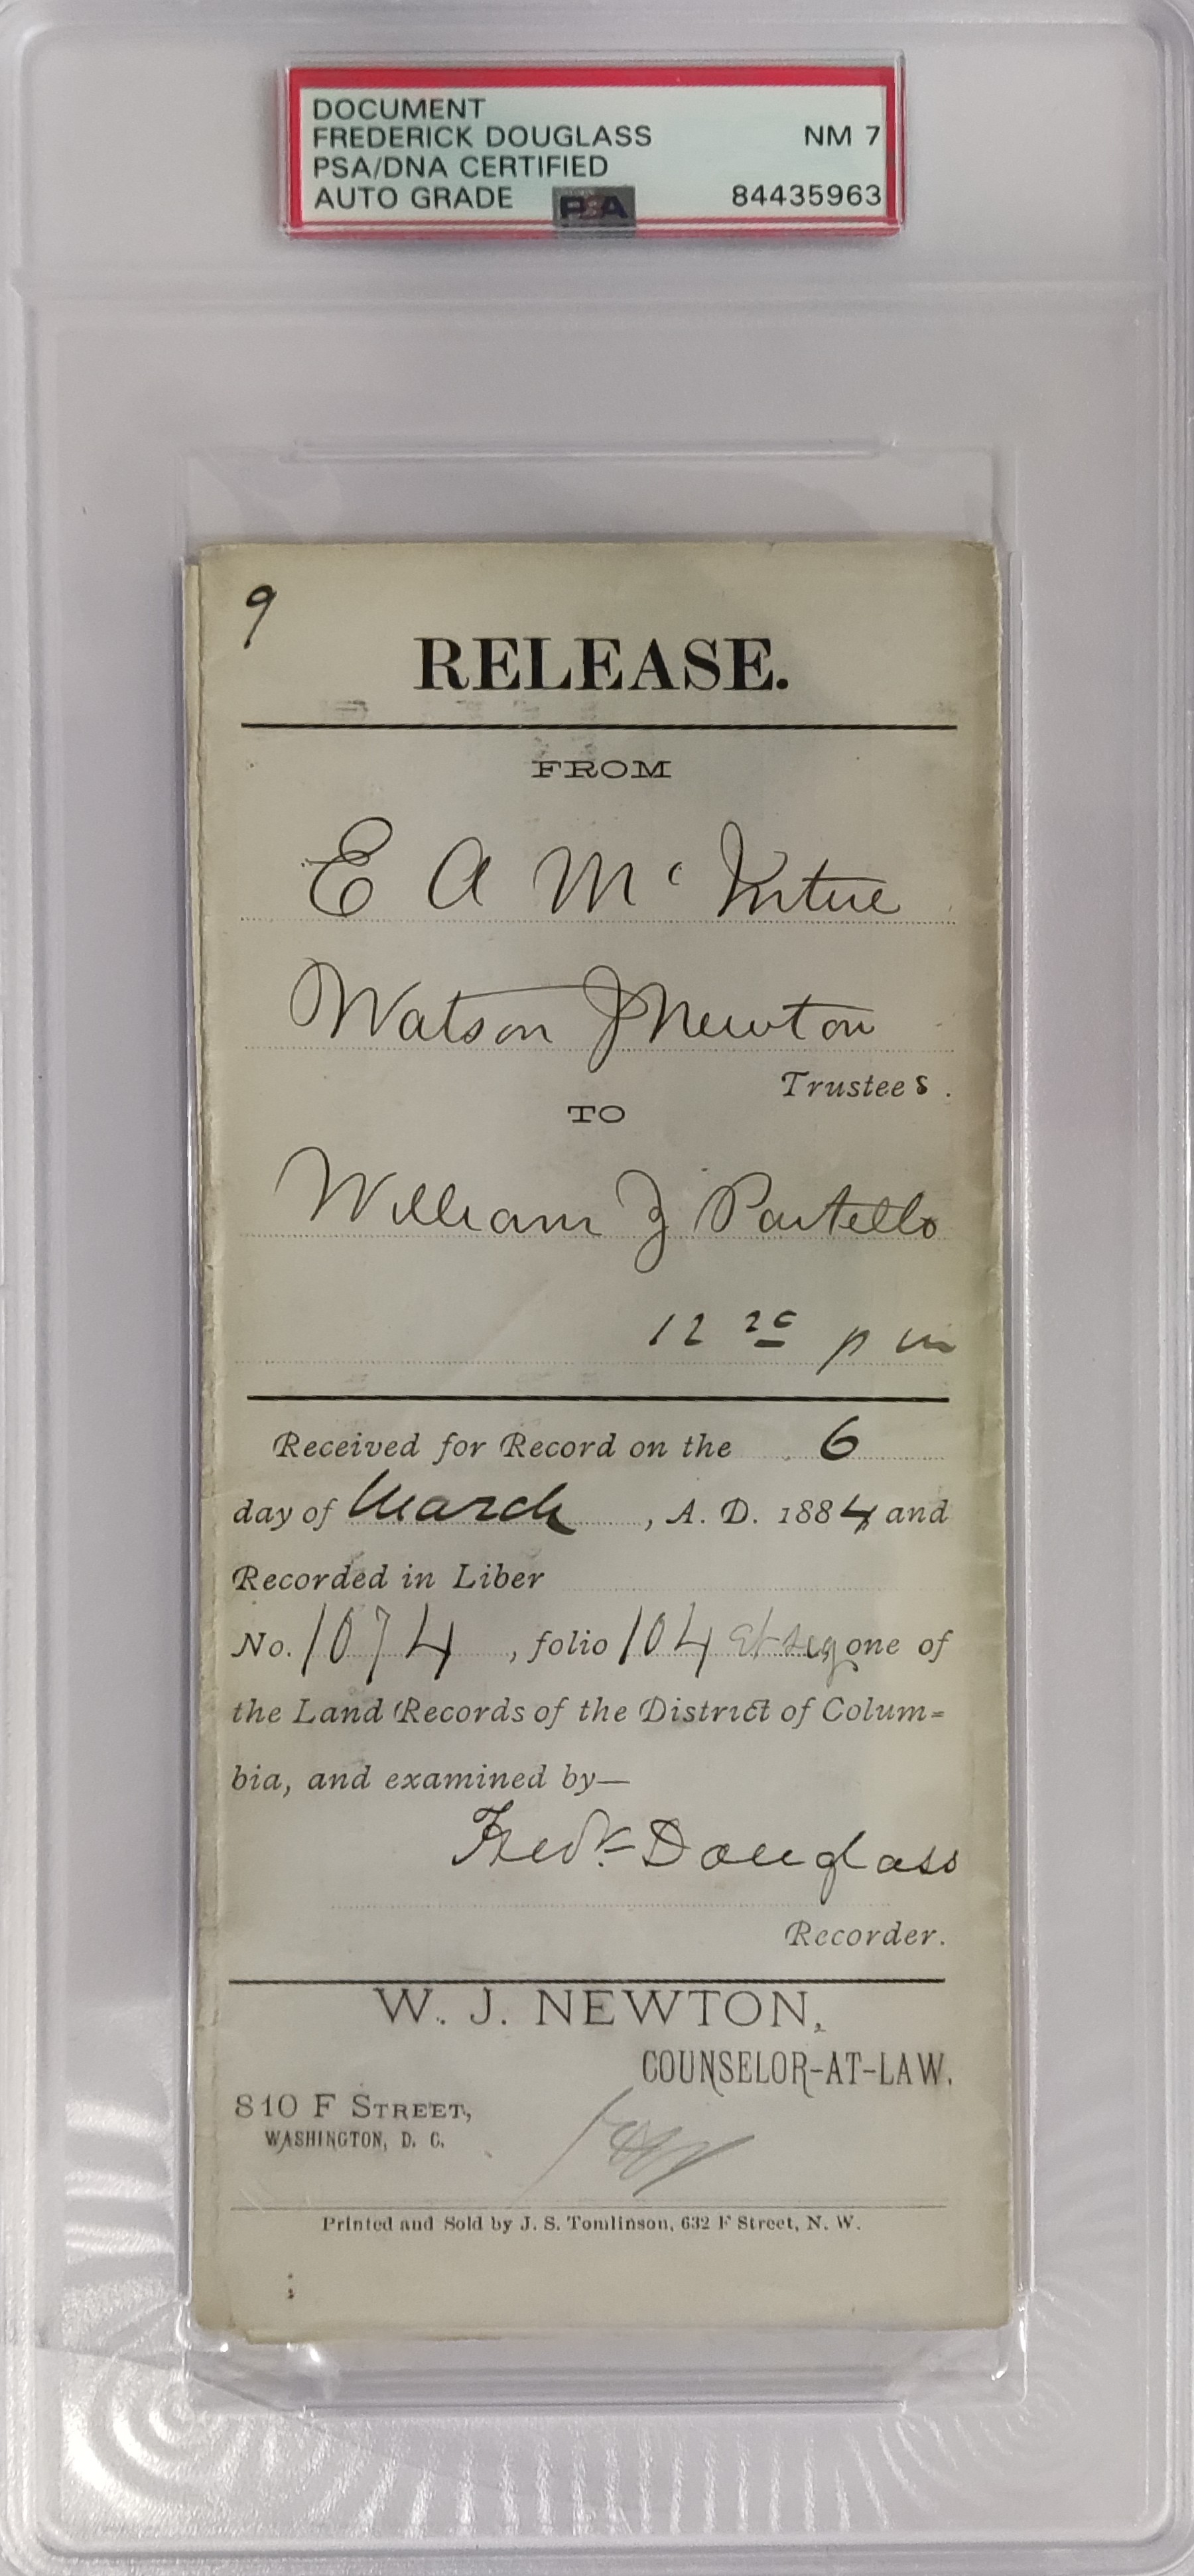 DOCUMENT
FREDERICK DOUGLASS NM 7
PSA/DNA CERTIFIED
AUTO GRADE PSA 84435963
9
RELEASE.
FROM
E A Mc Intire
Watson J Newton
Trustees.
TO
William Z Partello
12 20 p m
Received for Record on the 6
day of March, A. D. 1884 and
Recorded in Liber
No. 1074, folio 104 et seq one of
the Land Records of the District of Colum=
bia, and examined by—
Fredk Douglass
Recorder.
W. J. NEWTON,
COUNSELOR-AT-LAW.
810 F STREET,
WASHINGTON, D. C.
Printed and Sold by J. S. Tomlinson, 632 F Street, N. W.